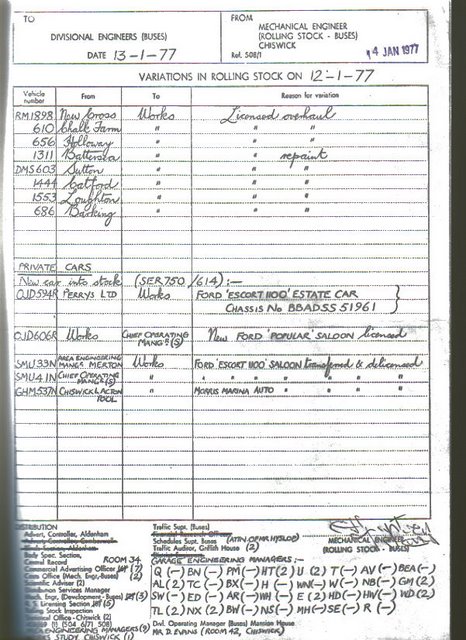 TO
DIVISIONAL ENGINEERS (BUSES)
DATE 13-1-77
FROM
MECHANICAL ENGINEER
(ROLLING STOCK - BUSES)
CHISWICK
Ref. 508/1
14 JAN 1977
VARIATIONS IN ROLLING STOCK ON 12-1-77
Vehicle number From To Reason for variation
RM1898 New Cross Works Licensed overhaul
610 Chalk Farm " " "
656 Holloway " " "
1311 Battersea " " repaint
DMS603 Sutton " " "
1444 Catford " " "
1553 Loughton " " "
686 Barking " " "
PRIVATE CARS
New car into stock (SER 750/614) :-
OJD594R PERRYS LTD Works FORD 'ESCORT 1100' ESTATE CAR
CHASSIS No BBADSS 51961
OJD606R Works CHIEF OPERATING MANGR (S) New FORD 'POPULAR' SALOON licensed
SMU33N AREA ENGINEERING MANGR MERTON Works FORD 'ESCORT 1100' SALOON transferred & delicensed
SMU41N CHIEF OPERATING MANGR (S) " " " " " " "
GHM537N CHISWICK & ACTON POOL " MORRIS MARINA AUTO " " " "
DISTRIBUTION
Advert. Controller, Aldenham
Body Spec. Section,
Central Record ROOM 34
Commercial Advertising Officer (7)
Costs Office (Mech. Engr. Buses) (2)
Scientific Adviser (2)
Distribution Services Manager
Mech. Engr. (Development - Buses) (3)
R.S. Licensing Section (5)
Rolling Stock Inspection
Operational Office - Chiswick (2)
AREA ENGINEERING MANAGERS (9)
WORKS STUDY CHISWICK (1)
Traffic Supt. (Buses)
Schedules Supt. Buses (ATTN. OF MR HYSLOP)
Traffic Auditor, Griffith House (2)
MECHANICAL ENGINEER
(ROLLING STOCK - BUSES)
GARAGE ENGINEERING MANAGERS :-
Q (-) BN (-) PM (-) HT (2) U (2) T (-) AV (-) BEA (-)
AL (2) TC (-) BX (-) H (-) WN (-) W (-) NB (-) GM (2)
SW (-) ED (-) AR (-) WH (-) E (2) HD (-) HW (-) WD (2)
TL (2) NX (2) BW (-) NS (-) MH (-) SE (-) R (-)
Divl. Operating Manager (Buses) Mansion House
MR D. EVANS (ROOM 42, CHISWICK)